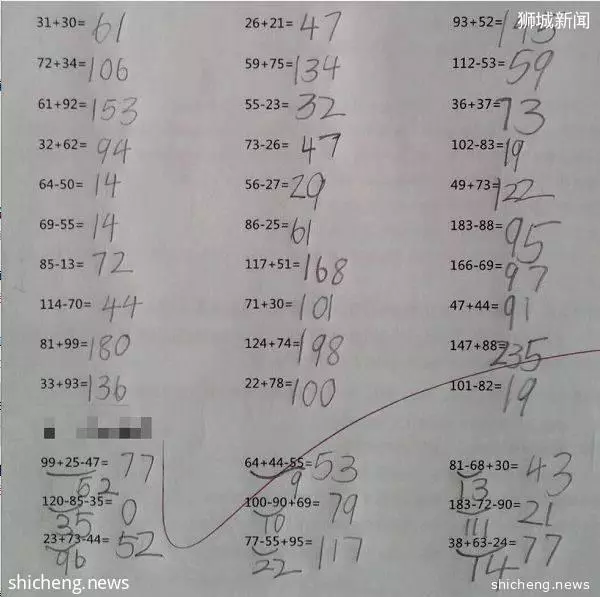 狮城新闻
31+30=61 26+21=47 93+52=145
72+34=106 59+75=134 112-53=59
61+92=153 55-23=32 36+37=73
32+62=94 73-26=47 102-83=19
64-50=14 56-27=29 49+73=122
69-55=14 86-25=61 183-88=95
85-13=72 117+51=168 166-69=97
114-70=44 71+30=101 47+44=91
81+99=180 124+74=198 147+88=235
33+93=136 22+78=100 101-82=19
99+25-47=77 64+44-55=53 81-68+30=43
52 9 13
120-85-35=0 100-90+69=79 183-72-90=21
35 10 111
23+73-44=52 77-55+95=117 38+63-24=77
96 22 14
shicheng.news shicheng.news